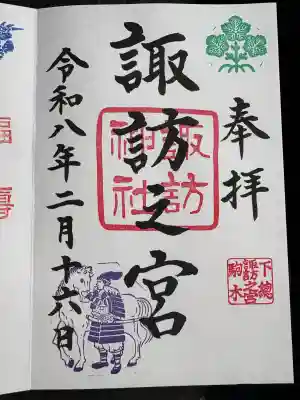 奉拝
下總
諏訪之宮
駒木
諏訪之宮
諏訪
神社
令和八年二月十六日
福寿